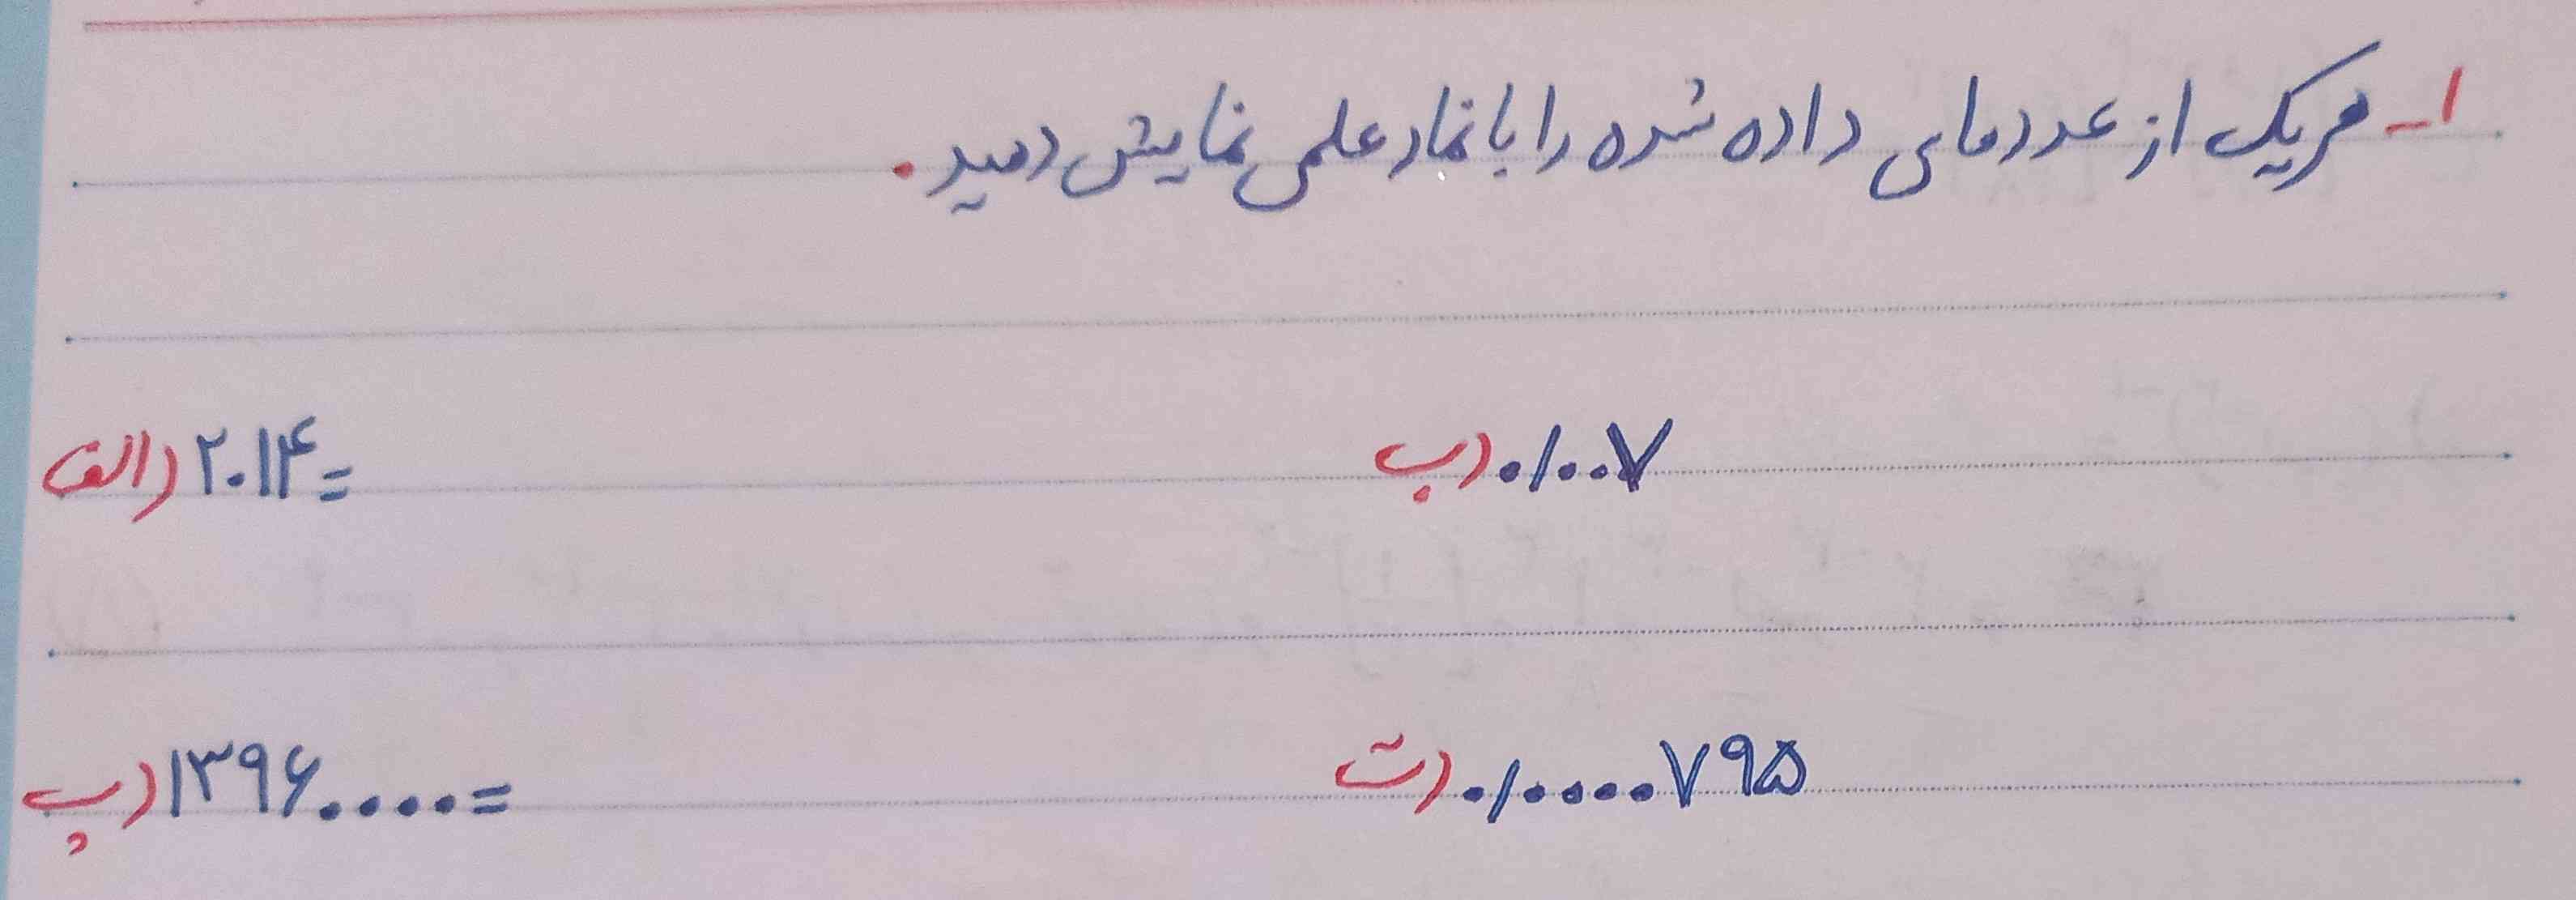 ۱- هریک از عددهای داده شده را با نماد علمی نمایش دهید.
الف) ۲۰۱۴ =
ب) ۰/۰۰۷
پ) ۱۳۹۶۰۰۰۰ =
ت) ۰/۰۰۰۰۷۹۵